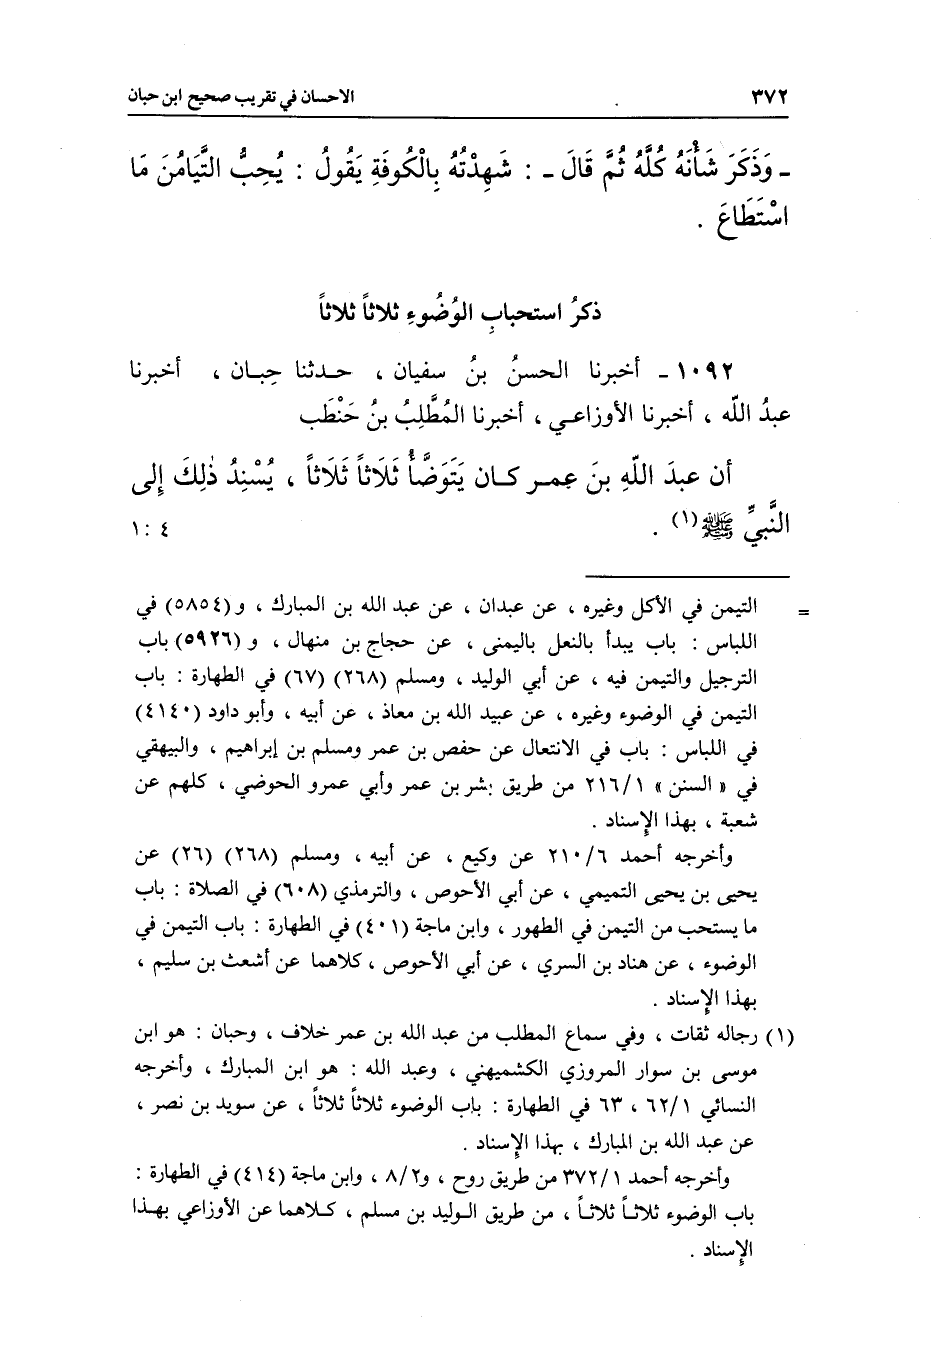 ٣٧٢ الاحسان في تقريب صحيح ابن حبان
ـ وَذَكَرَ شَأْنَهُ كُلَّهُ ثُمَّ قَالَ ـ : شَهِدْتُهُ بِالْكُوفَةِ يَقُولُ : يُحِبُّ التَّيَامُنَ مَا
اسْتَطَاعَ .
ذكرُ استحبابِ الوُضُوءِ ثلاثاً ثلاثاً
١٠٩٢ ـ أخبرنا الحسنُ بنُ سفيان ، حدثنا حِبان ، أخبرنا
عبدُ اللّه ، أخبرنا الأوزاعي ، أخبرنا المُطَّلِبُ بنُ حَنْطَب
أن عبدَ اللّهِ بنَ عمر كان يَتَوَضَّأُ ثَلَاثاً ثَلَاثاً ، يُسْنِدُ ذٰلِكَ إِلى
النَّبيِّ ﷺ(١) . ٤ : ١
= التيمن في الأكل وغيره ، عن عبدان ، عن عبد الله بن المبارك ، و(٥٨٥٤) في
اللباس : باب يبدأ بالنعل باليمنى ، عن حجاج بن منهال ، و (٥٩٢٦) باب
الترجيل والتيمن فيه ، عن أبي الوليد ، ومسلم (٢٦٨) (٦٧) في الطهارة : باب
التيمن في الوضوء وغيره ، عن عبيد الله بن معاذ ، عن أبيه ، وأبو داود (٤١٤٠)
في اللباس : باب في الانتعال عن حفص بن عمر ومسلم بن إبراهيم ، والبيهقي
في « السنن » ٢١٦/١ من طريق بشر بن عمر وأبي عمرو الحوضي ، كلهم عن
شعبة ، بهذا الإسناد .
وأخرجه أحمد ٢١٠/٦ عن وكيع ، عن أبيه ، ومسلم (٢٦٨) (٢٦) عن
يحيى بن يحيى التميمي ، عن أبي الأحوص ، والترمذي (٦٠٨) في الصلاة : باب
ما يستحب من التيمن في الطهور ، وابن ماجة (٤٠١) في الطهارة : باب التيمن في
الوضوء ، عن هناد بن السري ، عن أبي الأحوص ، كلاهما عن أشعث بن سليم ،
بهذا الإسناد .
(١) رجاله ثقات ، وفي سماع المطلب من عبد الله بن عمر خلاف ، وحبان : هو ابن
موسى بن سوار المروزي الكشميهني ، وعبد الله : هو ابن المبارك ، وأخرجه
النسائي ٦٢/١ ، ٦٣ في الطهارة : باب الوضوء ثلاثاً ثلاثاً ، عن سويد بن نصر ،
عن عبد الله بن المبارك ، بهذا الإسناد .
وأخرجه أحمد ٣٧٢/١ من طريق روح ، و٨/٢ ، وابن ماجة (٤١٤) في الطهارة :
باب الوضوء ثلاثاً ثلاثاً ، من طريق الوليد بن مسلم ، كلاهما عن الأوزاعي بهذا
الإسناد .